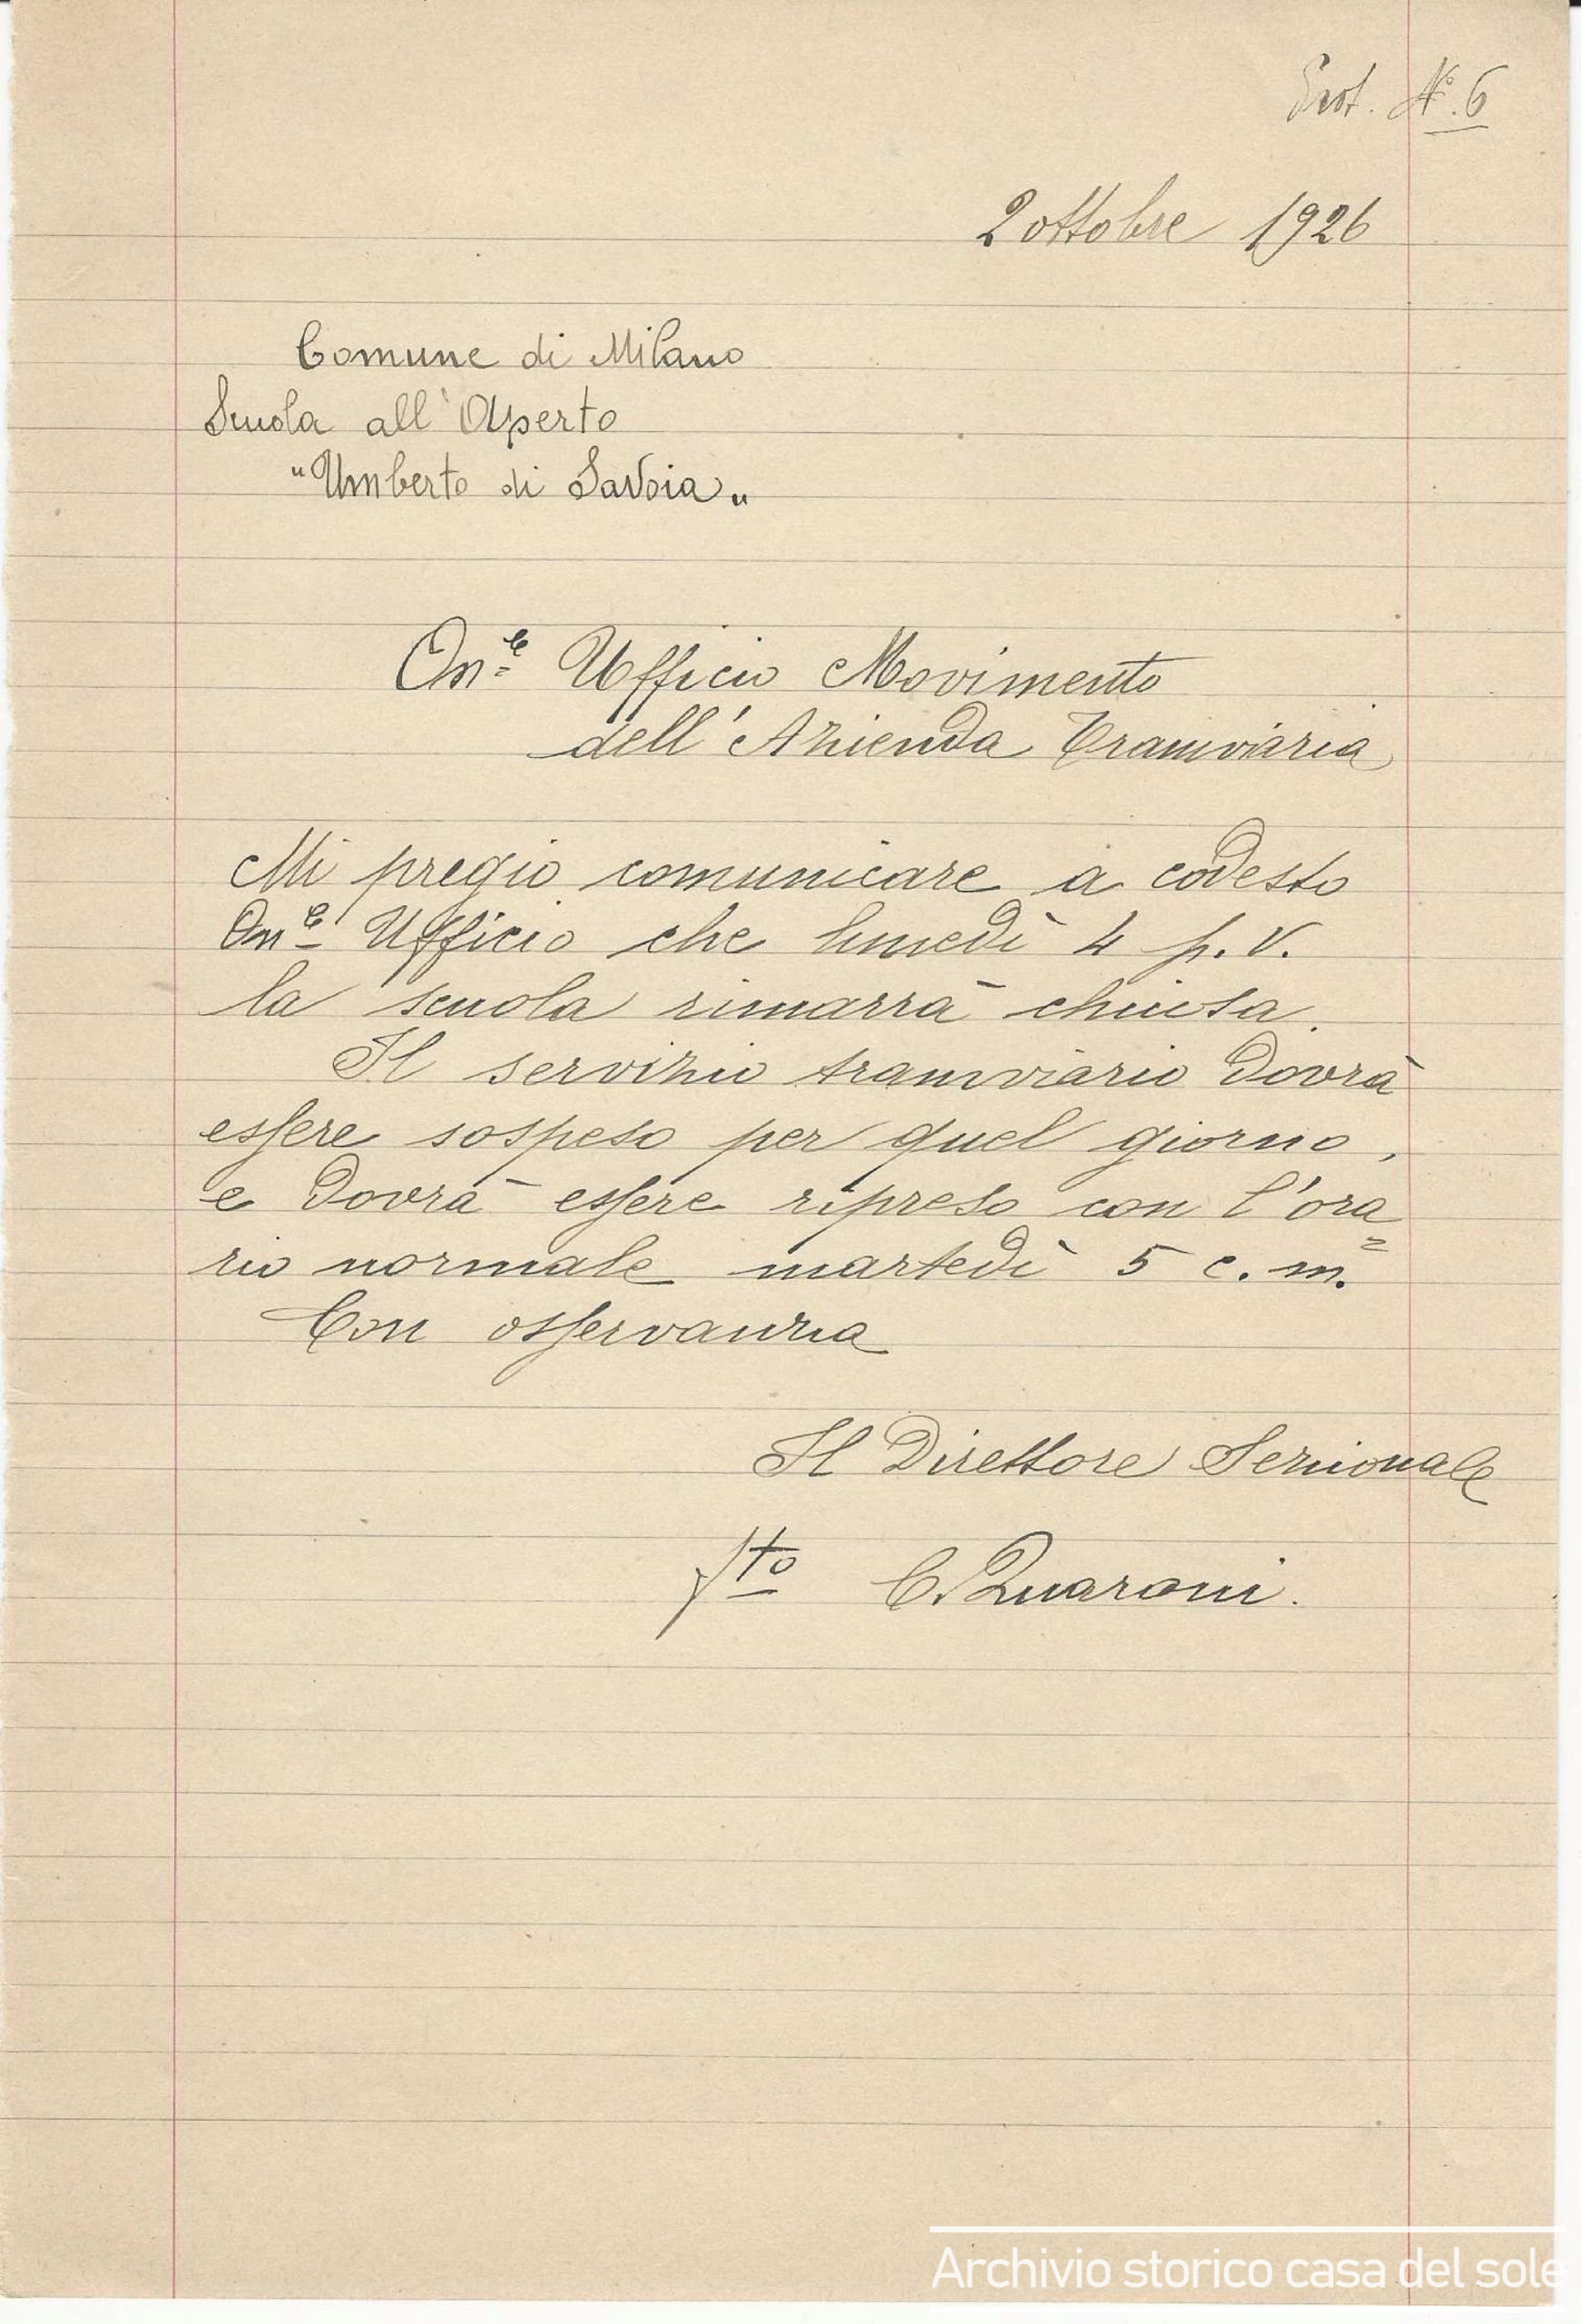 Prot. N° 6
2 ottobre 1926
Comune di Milano
Scuola all'Aperto
"Umberto di Savoia"
On.le Ufficio Movimento
dell'Azienda Tramviaria
Mi pregio comunicare a codesto
On.le Ufficio che lunedì 4 p. v.
la scuola rimarrà chiusa.
Il servizio tramviario dovrà
essere sospeso per quel giorno,
e dovrà essere ripreso con l'ora=
rio normale martedì 5 c. m.
Con osservanza
Il Direttore Sezionale
fto C. Quaroni.
Archivio storico casa del sole